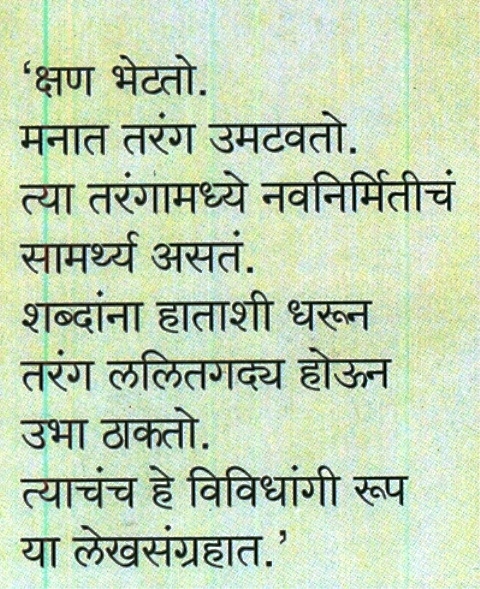 ‘क्षण भेटतो.
मनात तरंग उमटवतो.
त्या तरंगामध्ये नवनिर्मितीचं
सामर्थ्य असतं.
शब्दांना हाताशी धरून
तरंग ललितगद्य होऊन
उभा ठाकतो.
त्याचंच हे विविधांगी रूप
या लेखसंग्रहात.’